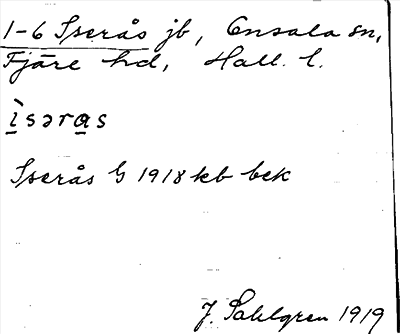 1-6 Iserås jb, Onsala sn,
Fjäre hd, Hall. l.
ìsəras
Iserås G 1918 kb bek
J. Sahlgren 1919